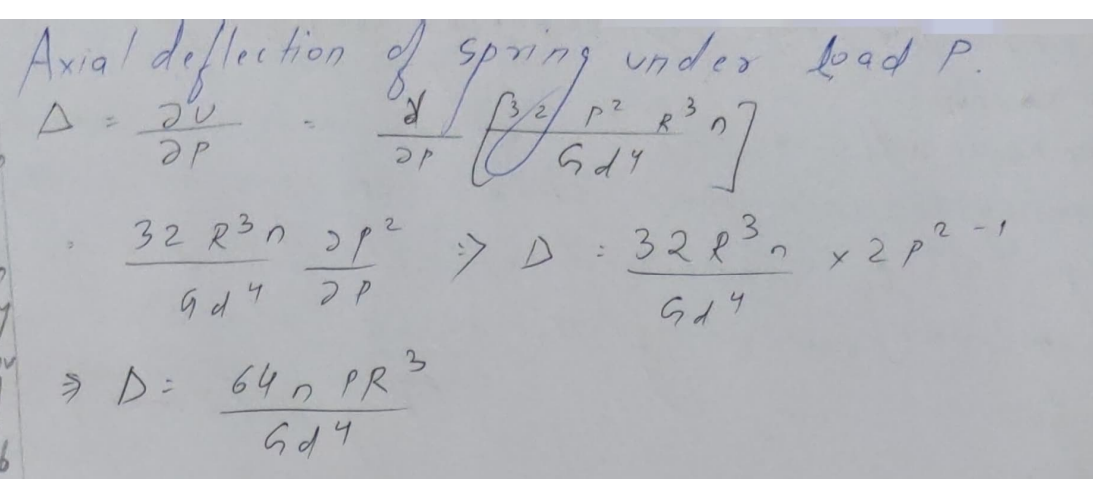 Axial deflection of spring under load P.
Δ = ∂U/∂P = ∂/∂P [32 P² R³ n / Gd⁴]
= 32 R³ n / Gd⁴ ∂P²/∂P ⇒ Δ = 32 R³ n / Gd⁴ × 2 P²⁻¹
⇒ Δ = 64 n PR³ / Gd⁴